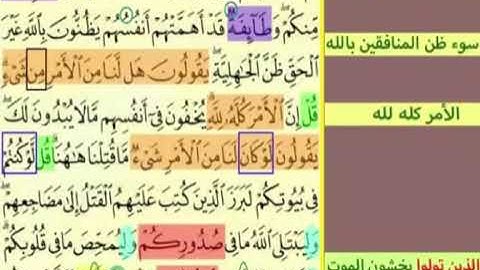 مِنكُمْ وَطَآئِفَةٌ قَدْ أَهَمَّتْهُمْ أَنفُسُهُمْ يَظُنُّونَ بِٱللَّهِ غَيْرَ
ٱلْحَقِّ ظَنَّ ٱلْجَٰهِلِيَّةِ يَقُولُونَ هَل لَّنَا مِنَ ٱلْأَمْرِ مِن شَىْءٍ
قُلْ إِنَّ ٱلْأَمْرَ كُلَّهُۥ لِلَّهِ يُخْفُونَ فِىٓ أَنفُسِهِم مَّا لَا يُبْدُونَ لَكَ
يَقُولُونَ لَوْ كَانَ لَنَا مِنَ ٱلْأَمْرِ شَىْءٌ مَّا قُتِلْنَا هَٰهُنَا قُل لَّوْ كُنتُمْ
فِى بُيُوتِكُمْ لَبَرَزَ ٱلَّذِينَ كُتِبَ عَلَيْهِمُ ٱلْقَتْلُ إِلَىٰ مَضَاجِعِهِمْ
وَلِيَبْتَلِىَ ٱللَّهُ مَا فِى صُدُورِكُمْ وَلِيُمَحِّصَ مَا فِى قُلُوبِكُمْ
سوء ظن المنافقين بالله
الأمر كله لله
الذين تولوا يخشون الموت